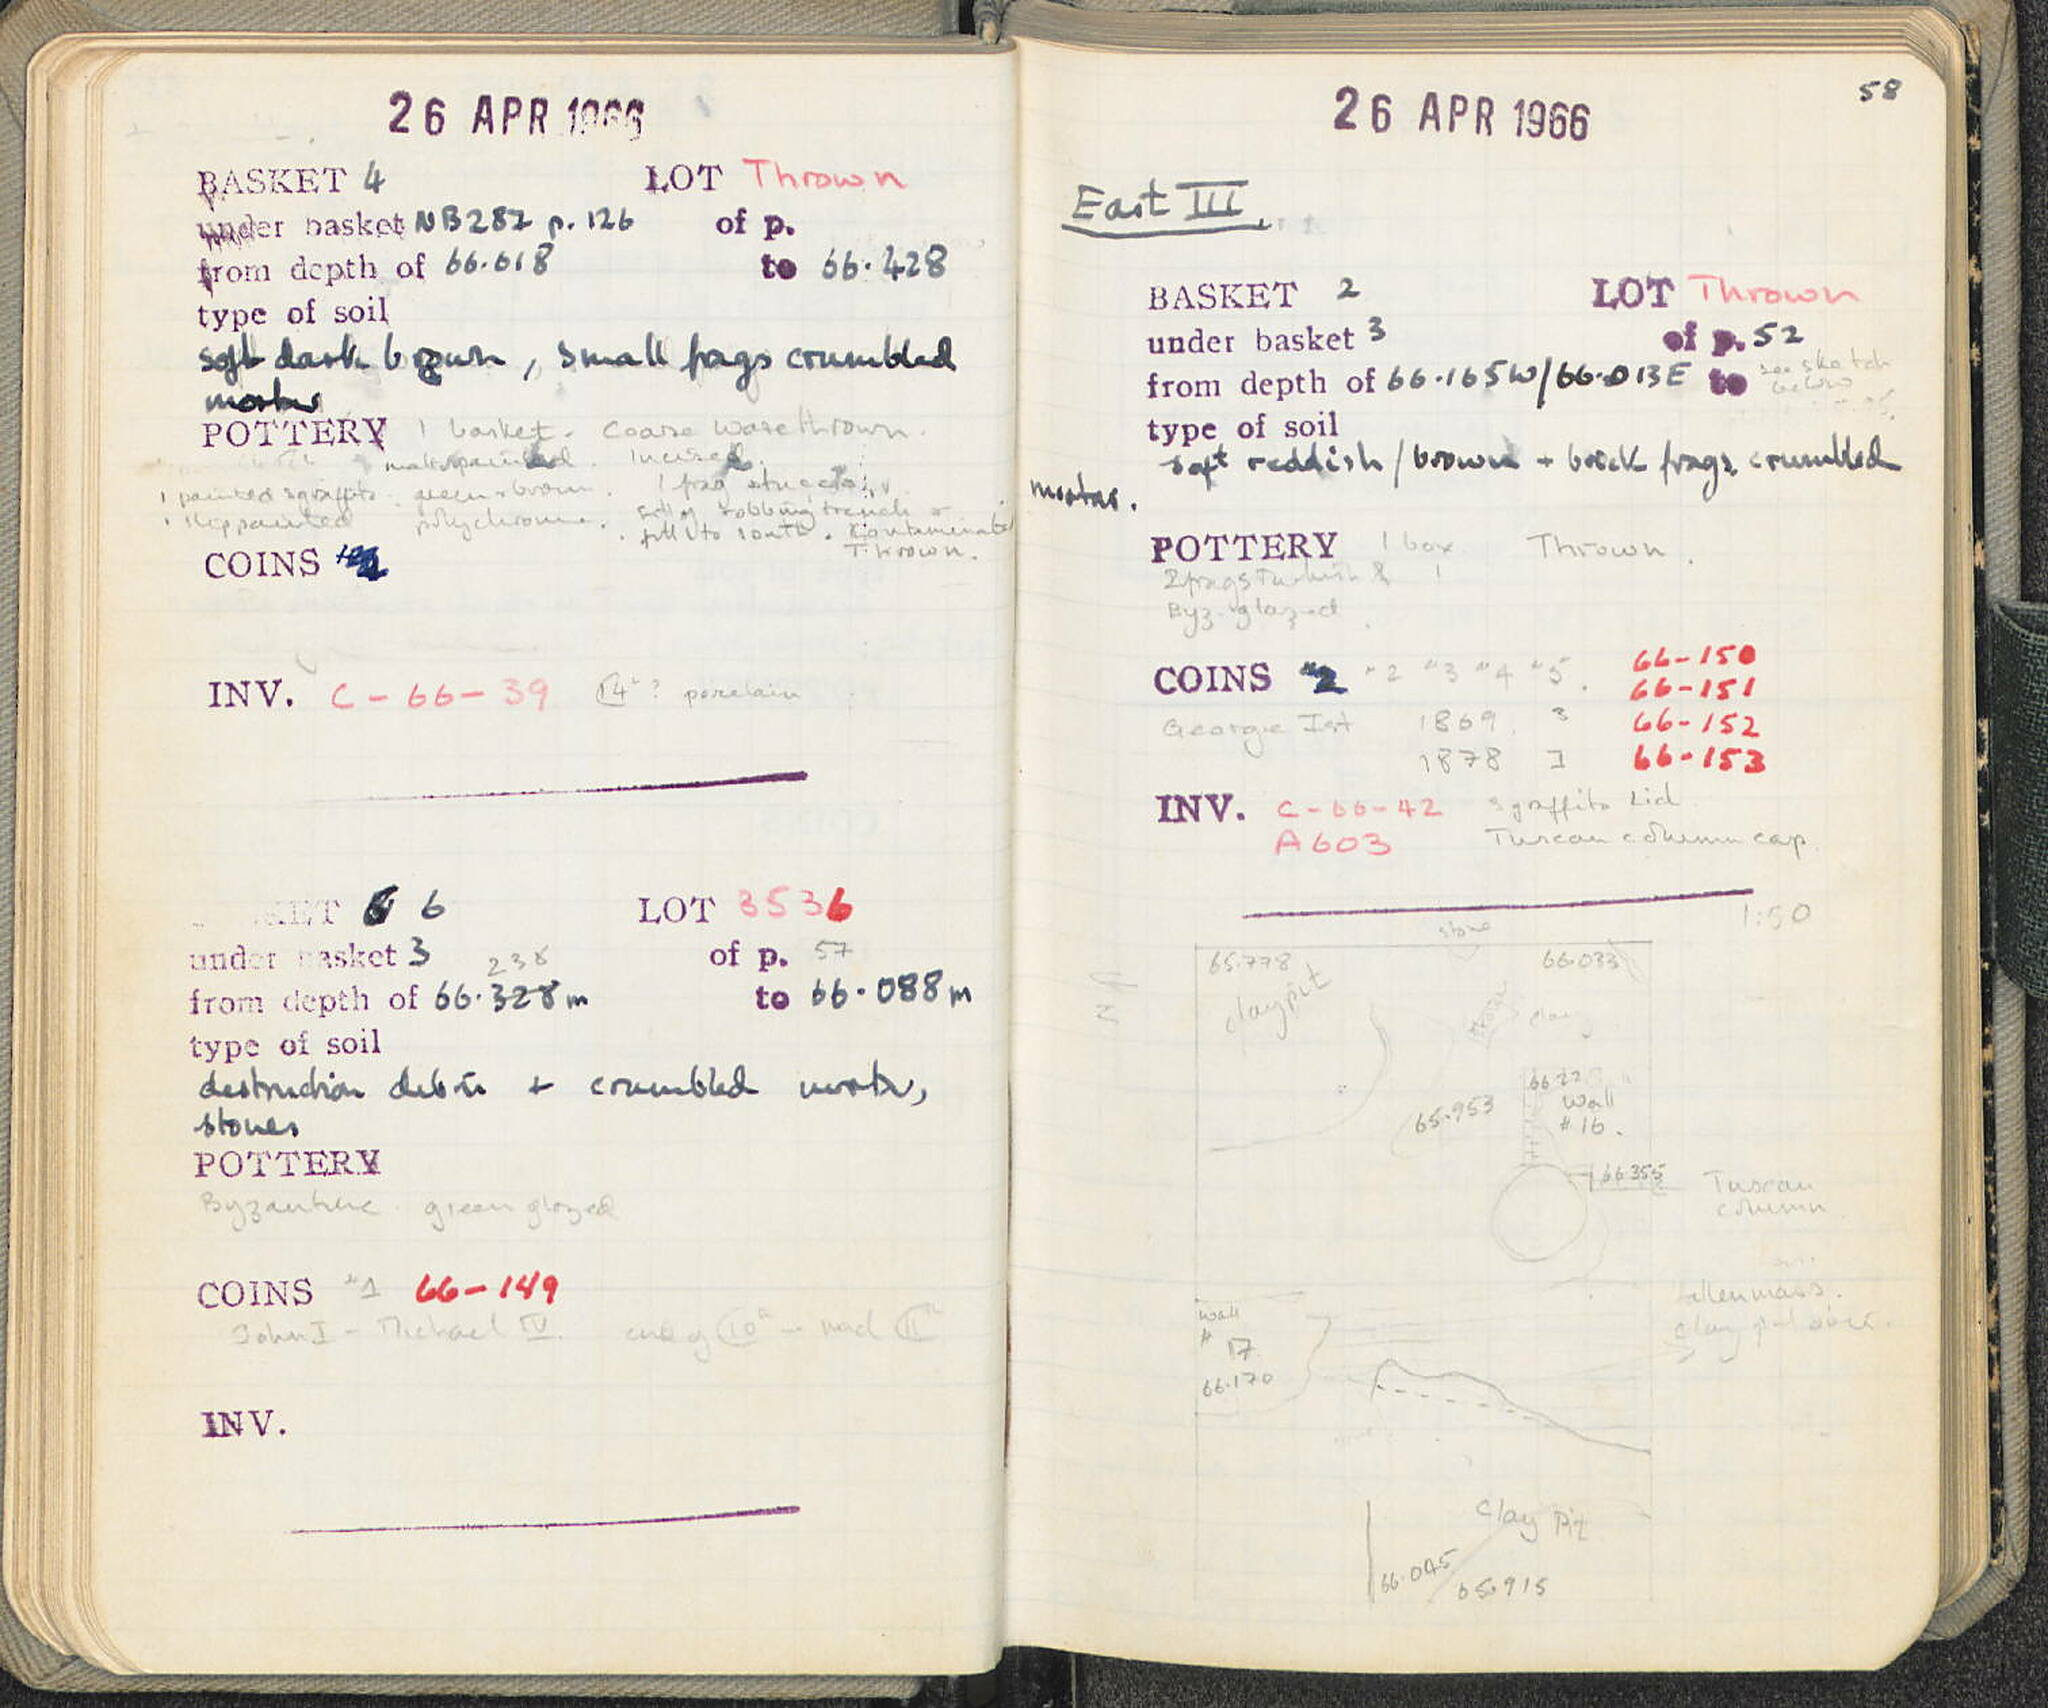 26 APR 1966
BASKET 4 LOT Thrown
under basket NB282 p. 126 of p.
from depth of 66.618 to 66.428
type of soil
soft dark brown, small frags crumbled
mortar
POTTERY 1 basket. Coarse ware thrown.
matt painted. Incised.
1 painted sgraffito. green & brown. 1 frag
1 slip painted polychrome. fill of robbing trench &
fill to south. Contaminated
Thrown.
COINS
INV. C-66-39 14th? porcelain
6 LOT 3536
under basket 3 of p. 57
238
from depth of 66.328m to 66.088m
type of soil
destruction debris + crumbled mortar,
stones
POTTERY
Byzantine green glazed
COINS #1 66-149
John I - Michael IV. end of 10th - mid 11th
INV.
58
26 APR 1966
East III.
BASKET 2 LOT Thrown
under basket 3 of p. 52
from depth of 66.165W/66.013E to see sketch
below
type of soil
soft reddish/brown + brick frags crumbled
mortar.
POTTERY 1 box Thrown.
2 frags Turkish &
Byz. glazed
COINS "2 "3 "4 "5. 66-150
66-151
George Ist 1869. 3 66-152
1878 1 66-153
INV. C-66-42 sgraffito Lid
A603 Tuscan column cap.
1:50
stone
65.778 66.033
clay pit clay
N
66.22
65.953 Wall
#16.
66.355 Tuscan
column
Wall
#
17
66.170
fallen mass.
Clay Pit
66.045
65.915